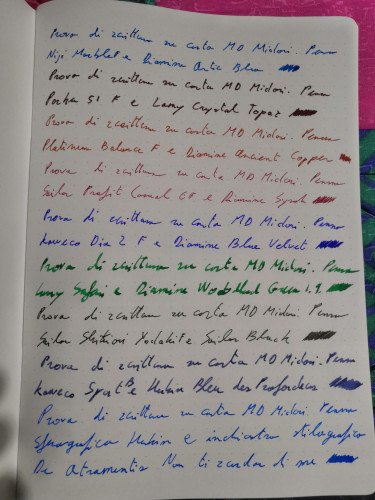 Prova di scrittura su carta MD Midori. Penna
Niji Marblet e Diamine Artic Blue
Prova di scrittura su carta MD Midori. Penna
Parker 51 F e Lamy Crystal Topaz
Prova di scrittura su carta MD Midori. Penna
Platinum Balance F e Diamine Ancient Copper
Prova di scrittura su carta MD Midori. Penna
Sailor Profit Casual GF e Diamine Syrah
Prova di scrittura su carta MD Midori. Penna
Kaweco Dia 2 F e Diamine Blue Velvet
Prova di scrittura su carta MD Midori. Penna
Lamy Safari e Diamine Woodland Green 1.1
Prova di scrittura su carta MD Midori. Penna
Sailor Shikiori Yodaki F e Sailor Black
Prova di scrittura su carta MD Midori. Penna
Kaweco Sport B e Hubin Bleu des Profondeurs
Prova di scrittura su carta MD Midori. Penna
Sferografica Hubin e inchiostro stilografico
De Atramentis Non ti scordar di me